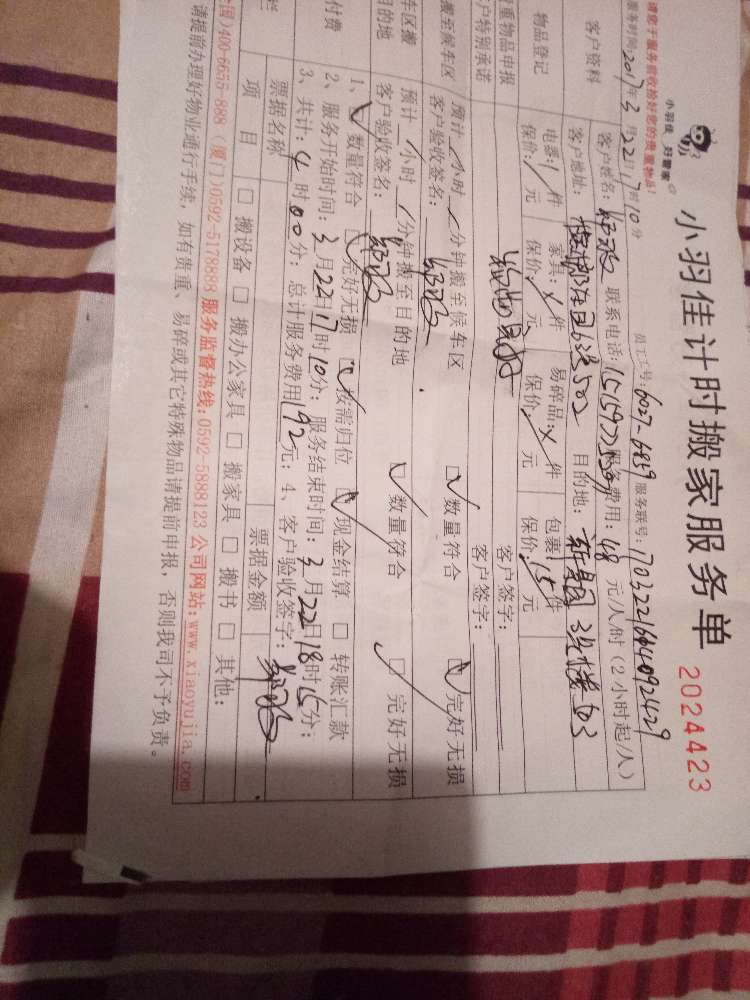 小羽佳计时搬家服务单
2024423
小羽佳 好管家
请您于服务前收拾好您的贵重物品!
服务时间:2017年3月22 17时10分 员工号:6027-6839 服务联号:
客户资料
客户姓名: 联系电话: 服务费用:48 元/人/时(2小时起/人)
客户地址: 目的地:
物品登记
电器: 件 家具:X件 易碎品:X件 包裹:15件
保价: 元 保价: 元 保价: 元 保价: 元
重物品申报 客户签字:
户特别承诺 客户签字:
搬至候车区 预计 小时 分钟搬至候车区 数量符合 完好无损
客户验收签名:
车区搬 预计 小时 分钟搬至目的地 数量符合 完好无损
目的地 客户验收签名:
付费
1、 数量符合 完好无损 按需归位 现金结算 转账汇款
2、服务开始时间:3月22日17时10分;服务结束时间:3月22日18时15分;
3、共计:4时00分;总计服务费用192元;4、客户验收签字:
票据名称 票据金额
项目 搬设备 搬办公家具 搬家具 搬书 其他:
国)400-6655-888(厦门)0592-5178888 服务监督热线:0592-5888123 公司网站:www.xiaoyujia.com
请提前办理好物业通行手续,如有贵重、易碎或其它特殊物品请提前申报,否则我司不予负责。